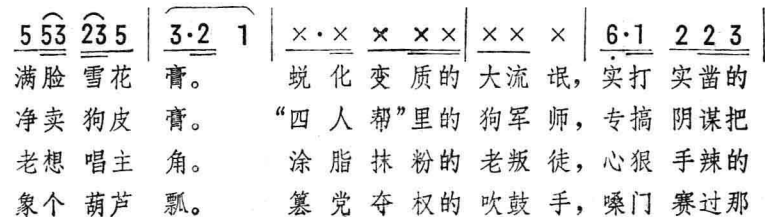 5 53 23 5 | 3·2 1 | ×·× × ×× | ×× × | 6·1 2 2 3 |
满脸 雪花 膏。 蜕 化 变 质的 大流 氓，实打 实凿的
净卖 狗皮 膏。 “四 人 帮”里的 狗军 师，专搞 阴谋把
老想 唱主 角。 涂 脂 抹 粉的 老叛 徒，心狠 手辣的
象个 葫芦 瓢。 篡 党 夺 权的 吹鼓 手，嗓门 赛过那